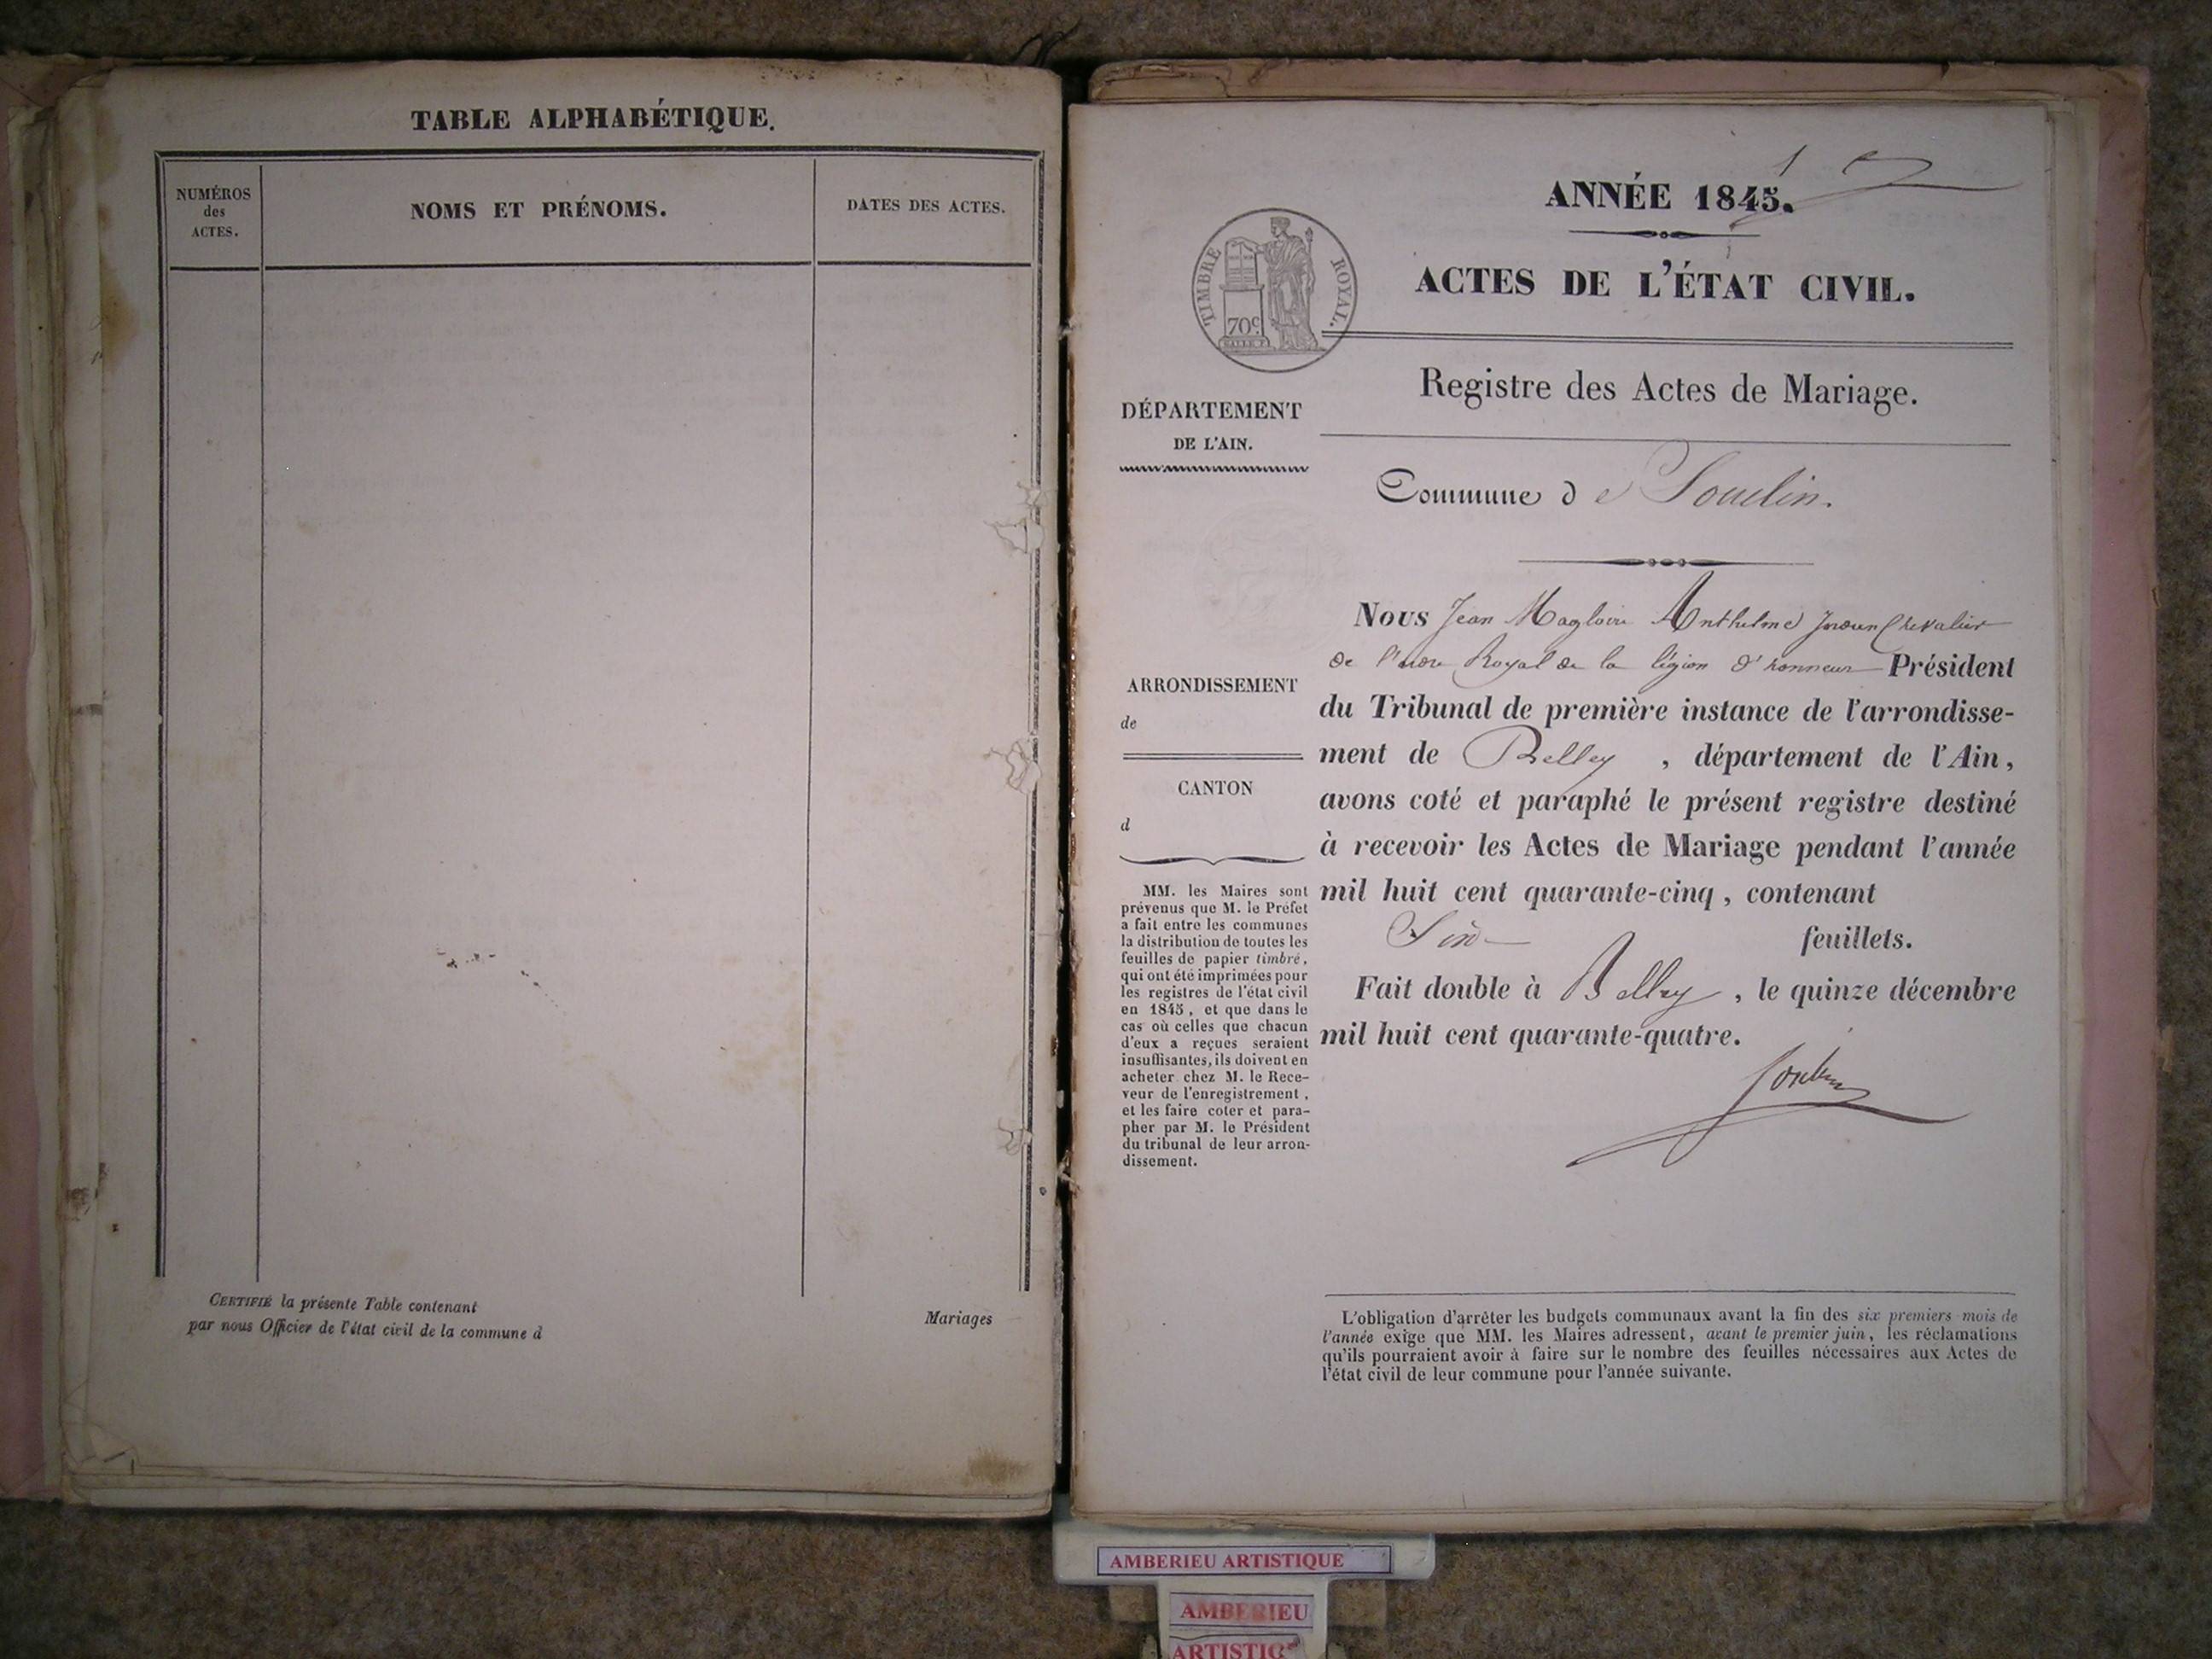 TABLE ALPHABÉTIQUE.
NUMÉROS
des
ACTES.
NOMS ET PRÉNOMS.
DATES DES ACTES.
CERTIFIÉ la présente Table contenant
par nous Officier de l'état civil de la commune d
Mariages
1
ANNÉE 1845.
ACTES DE L'ÉTAT CIVIL.
TIMBRE ROYAL.
70c
Registre des Actes de Mariage.
DÉPARTEMENT
DE L'AIN.
Commune de Souclin.
ARRONDISSEMENT
de
CANTON
d
MM. les Maires sont
prévenus que M. le Préfet
a fait entre les communes
la distribution de toutes les
feuilles de papier timbré,
qui ont été imprimées pour
les registres de l'état civil
en 1845, et que dans le
cas où celles que chacun
d'eux a reçues seraient
insuffisantes, ils doivent en
acheter chez M. le Rece-
veur de l'enregistrement,
et les faire coter et para-
pher par M. le Président
du tribunal de leur arron-
dissement.
Nous Jean Magloire Anthelme Chevalier
de l'ordre Royal de la légion d'honneur Président
du Tribunal de première instance de l'arrondisse-
ment de Belley, département de l'Ain,
avons coté et paraphé le présent registre destiné
à recevoir les Actes de Mariage pendant l'année
mil huit cent quarante-cinq, contenant
feuillets.
Fait double à Belley, le quinze décembre
mil huit cent quarante-quatre.
L'obligation d'arrêter les budgets communaux avant la fin des six premiers mois de
l'année exige que MM. les Maires adressent, avant le premier juin, les réclamations
qu'ils pourraient avoir à faire sur le nombre des feuilles nécessaires aux Actes de
l'état civil de leur commune pour l'année suivante.
AMBERIEU ARTISTIQUE
AMBERIEU
ARTISTIQ